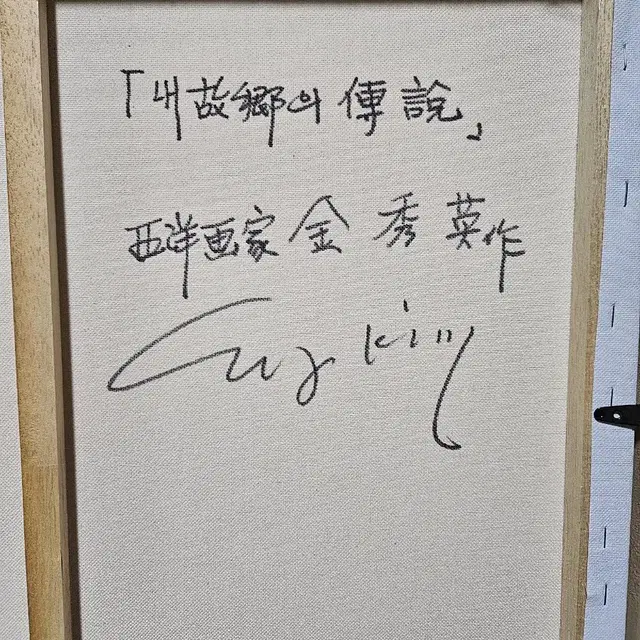 「내故鄕의 傳說」
西洋画家 金秀英作
kim